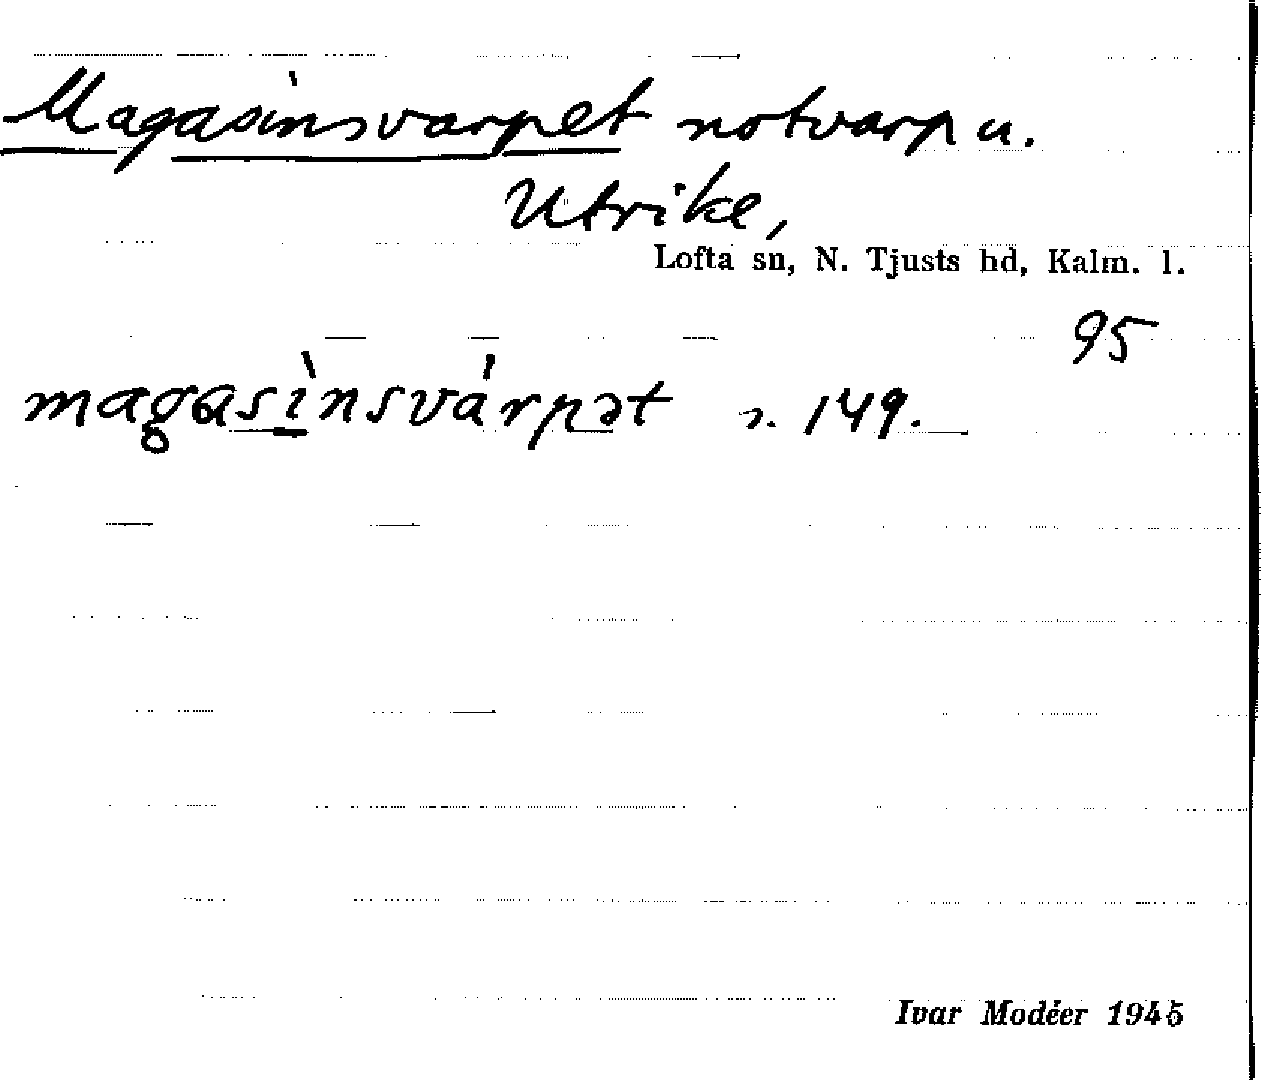 Magasinsvarpet notvarp u.
Utrike,
Lofta sn, N. Tjusts hd, Kalm. l.
95
magasìnsvárpət s. 149.
Ivar Modéer 1945